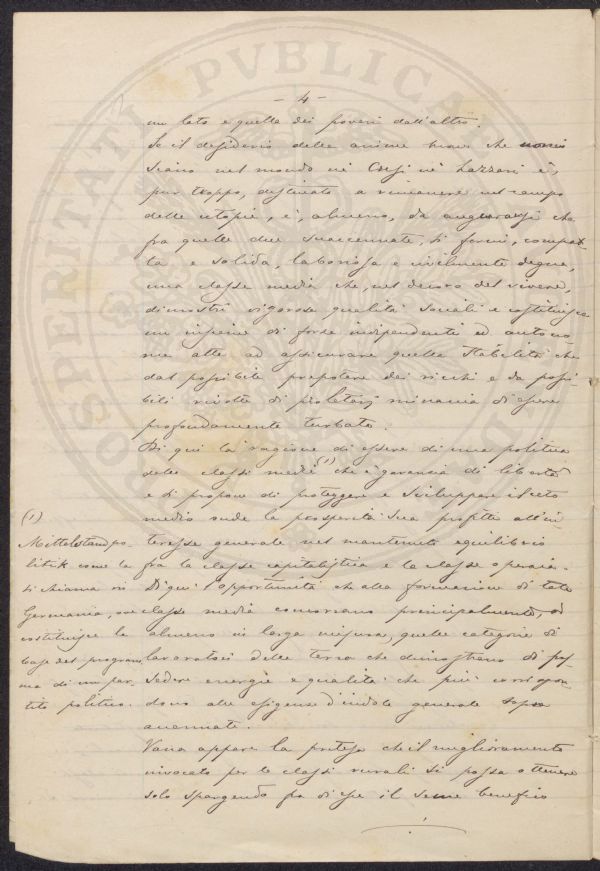 - 4 -
un lato e quella dei poveri dall'altro.
Se il desiderio delle anime buone che non vi
siano nel mondo nè Cresi nè Lazzari è,
pur troppo, destinato a rimanere nel campo
delle utopie, è, almeno, da augurarsi che
fra quelle due suaccennate, si formi, compat
ta e solida, laboriosa e civilmente degna,
una classe media che, nel decoro del vivere,
dimostri vigorose qualità sociali e costituisca
un insieme di forze indipendenti ed autono
me atte ad assicurare quella stabilità che
dal possibile prepotere dei ricchi e da possi
bili rivolte di proletarj minaccia di essere
profondamente turbata.
Di qui la ragione di essere di una politica
delle classi medie (1) che è garanzia di libertà
e si propone di proteggere e sviluppare il ceto
medio onde la prosperità sua profitti all'in
teresse generale nel mantenuto equilibrio
fra la classe capitalistica e la classe operaia.
Di qui l'opportunità che alla formazione di tale
classe media concorrano principalmente, od
almeno in larga misura, quelle categorie di
lavoratori della terra che dimostrano di pos
sedere energie e qualità che più corrispon
dono alle esigenze d'indole generale sopra
accennate.
Vana appare la pretesa che il miglioramento
invocato per le classi rurali si possa ottenere
solo spargendo fra di esse il seme benefico
(1)
Mittelstandspo
litik come la
si chiama in
Germania, ove
costituisce la
base del program
ma di un par
tito politico.
PROSPERITATI PVBLICAE